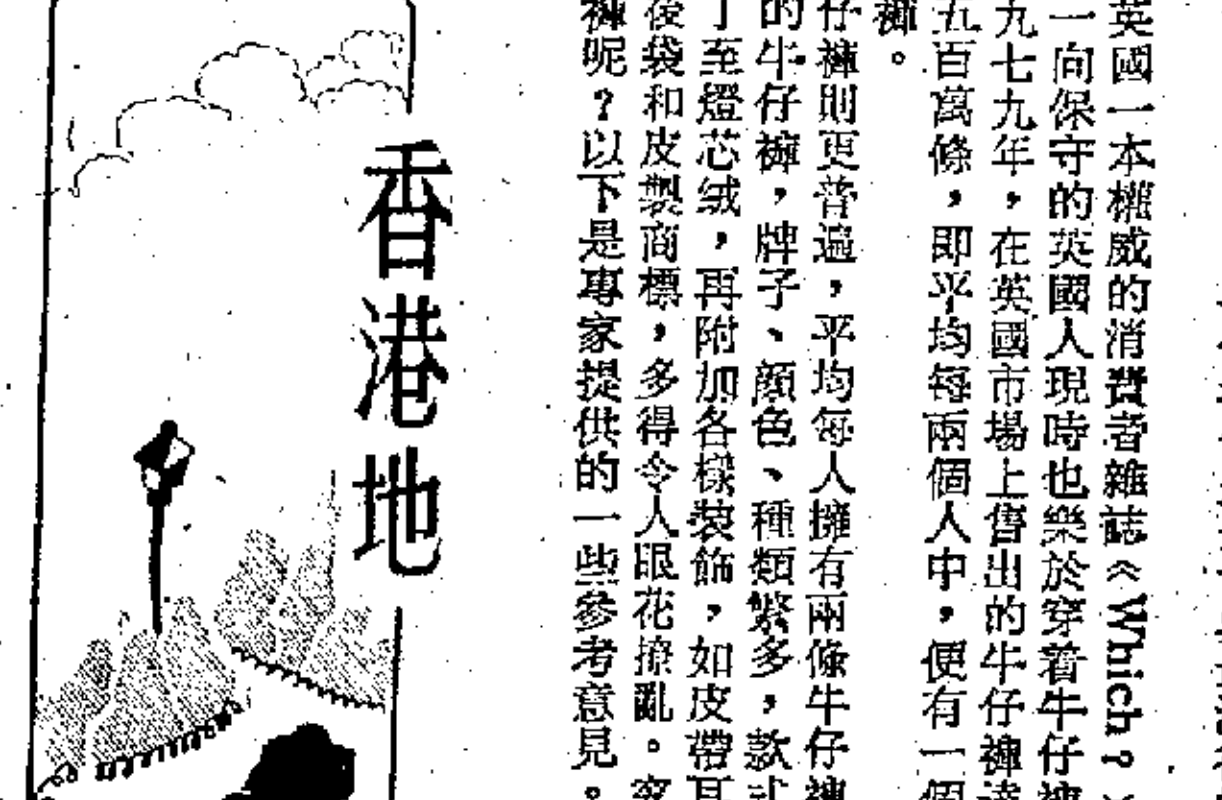 英國一本權威的消費者雜誌《Which?
一向保守的英國人現時也樂於穿着牛仔褲
九七九年,在英國市場上售出的牛仔褲達
五百萬條,即平均每兩個人中,便有一個
褲。
仔褲則更普遍,平均每人擁有兩條牛仔褲
的牛仔褲,牌子、顏色、種類繁多,款式
丁至燈芯绒,再附加各樣裝飾,如皮帶耳
後袋和皮製商標,多得令人眼花撩亂。究
褲呢?以下是專家提供的一些參考意見。
香港地